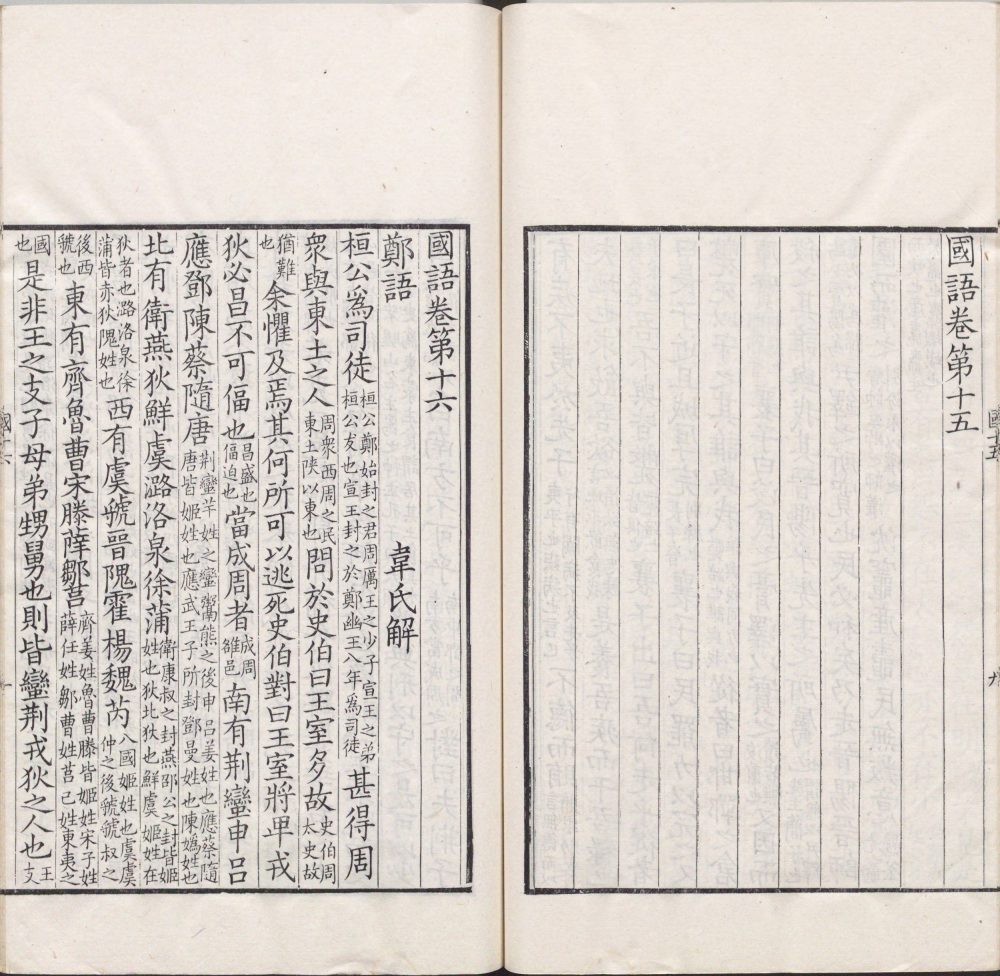 國語卷第十五
九
國語卷第十六
鄭語 韋氏解
桓公爲司徒桓公鄭始封之君周厲王之少子宣王之弟桓公友也宣王封之於鄭幽王八年爲司徒甚得周
衆與東土之人周衆西周之民東土陝以東也問於史伯曰王室多故史伯周太史故
猶難也余懼及焉其何所可以逃死史伯對曰王室將卑戎
狄必昌不可偪也昌盛也偪迫也當成周者成周雒邑南有荆蠻申呂
應鄧陳蔡隨唐荆蠻羋姓之蠻鬻熊之後申呂姜姓也應蔡隨唐皆姬姓也應武王子所封鄧曼姓也陳嬀姓也
北有衛燕狄鮮虞潞洛泉徐蒲衛康叔之封燕邵公之封皆姬姓也狄北狄也鮮虞姬姓在
狄者也潞洛泉徐蒲皆赤狄隗姓也西有虞虢晉隗霍楊魏芮八國姬姓也虞虞仲之後虢虢叔之
後西虢也東有齊魯曹宋滕薛鄒莒齊姜姓魯曹滕皆姬姓宋子姓薛任姓鄒曹姓莒己姓東夷之
國也是非王之支子母弟甥舅也則皆蠻荆戎狄之人也王支